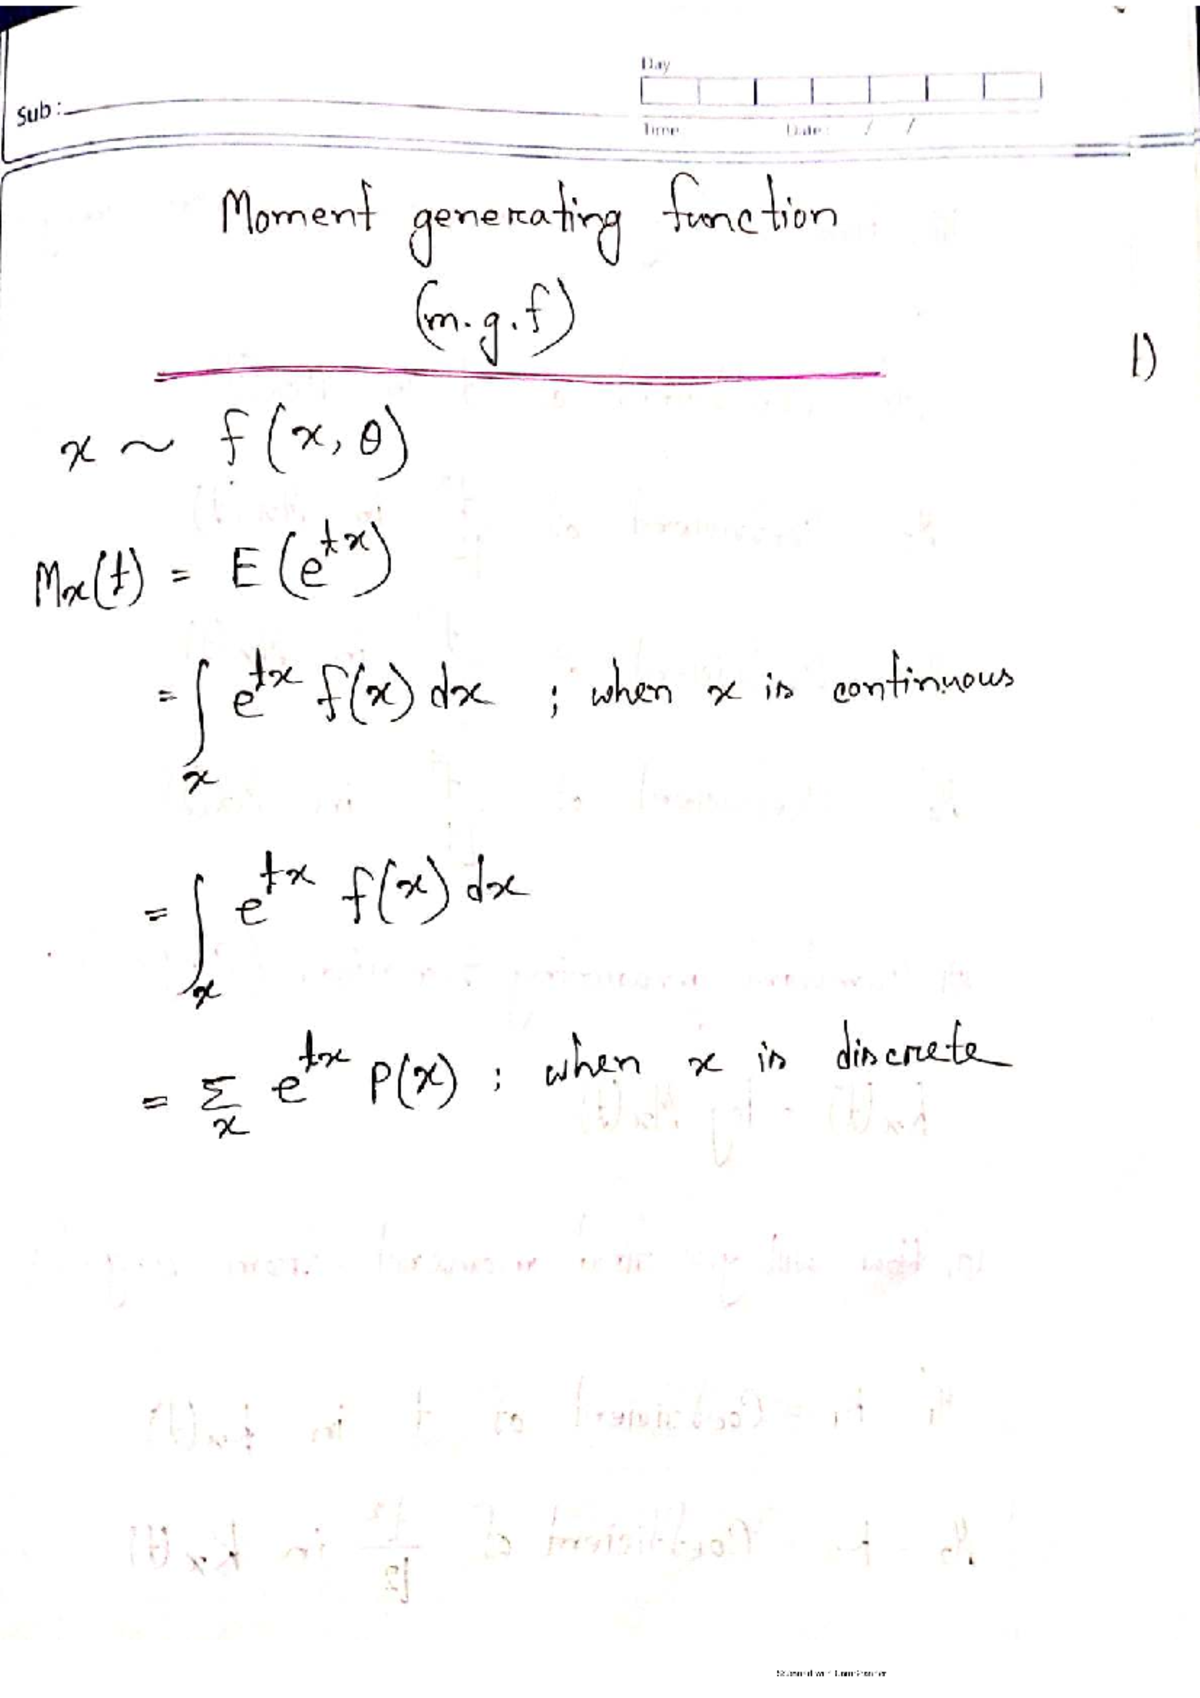 Day
Sub :
Time Date : / /
Moment generating function
(m.g.f)
1)
x ~ f(x, θ)
Mx(t) = E(e^tx)
= ∫x e^tx f(x) dx ; when x is continuous
= ∫x e^tx f(x) dx
= Σx e^tx P(x) ; when x is discrete
Scanned with CamScanner